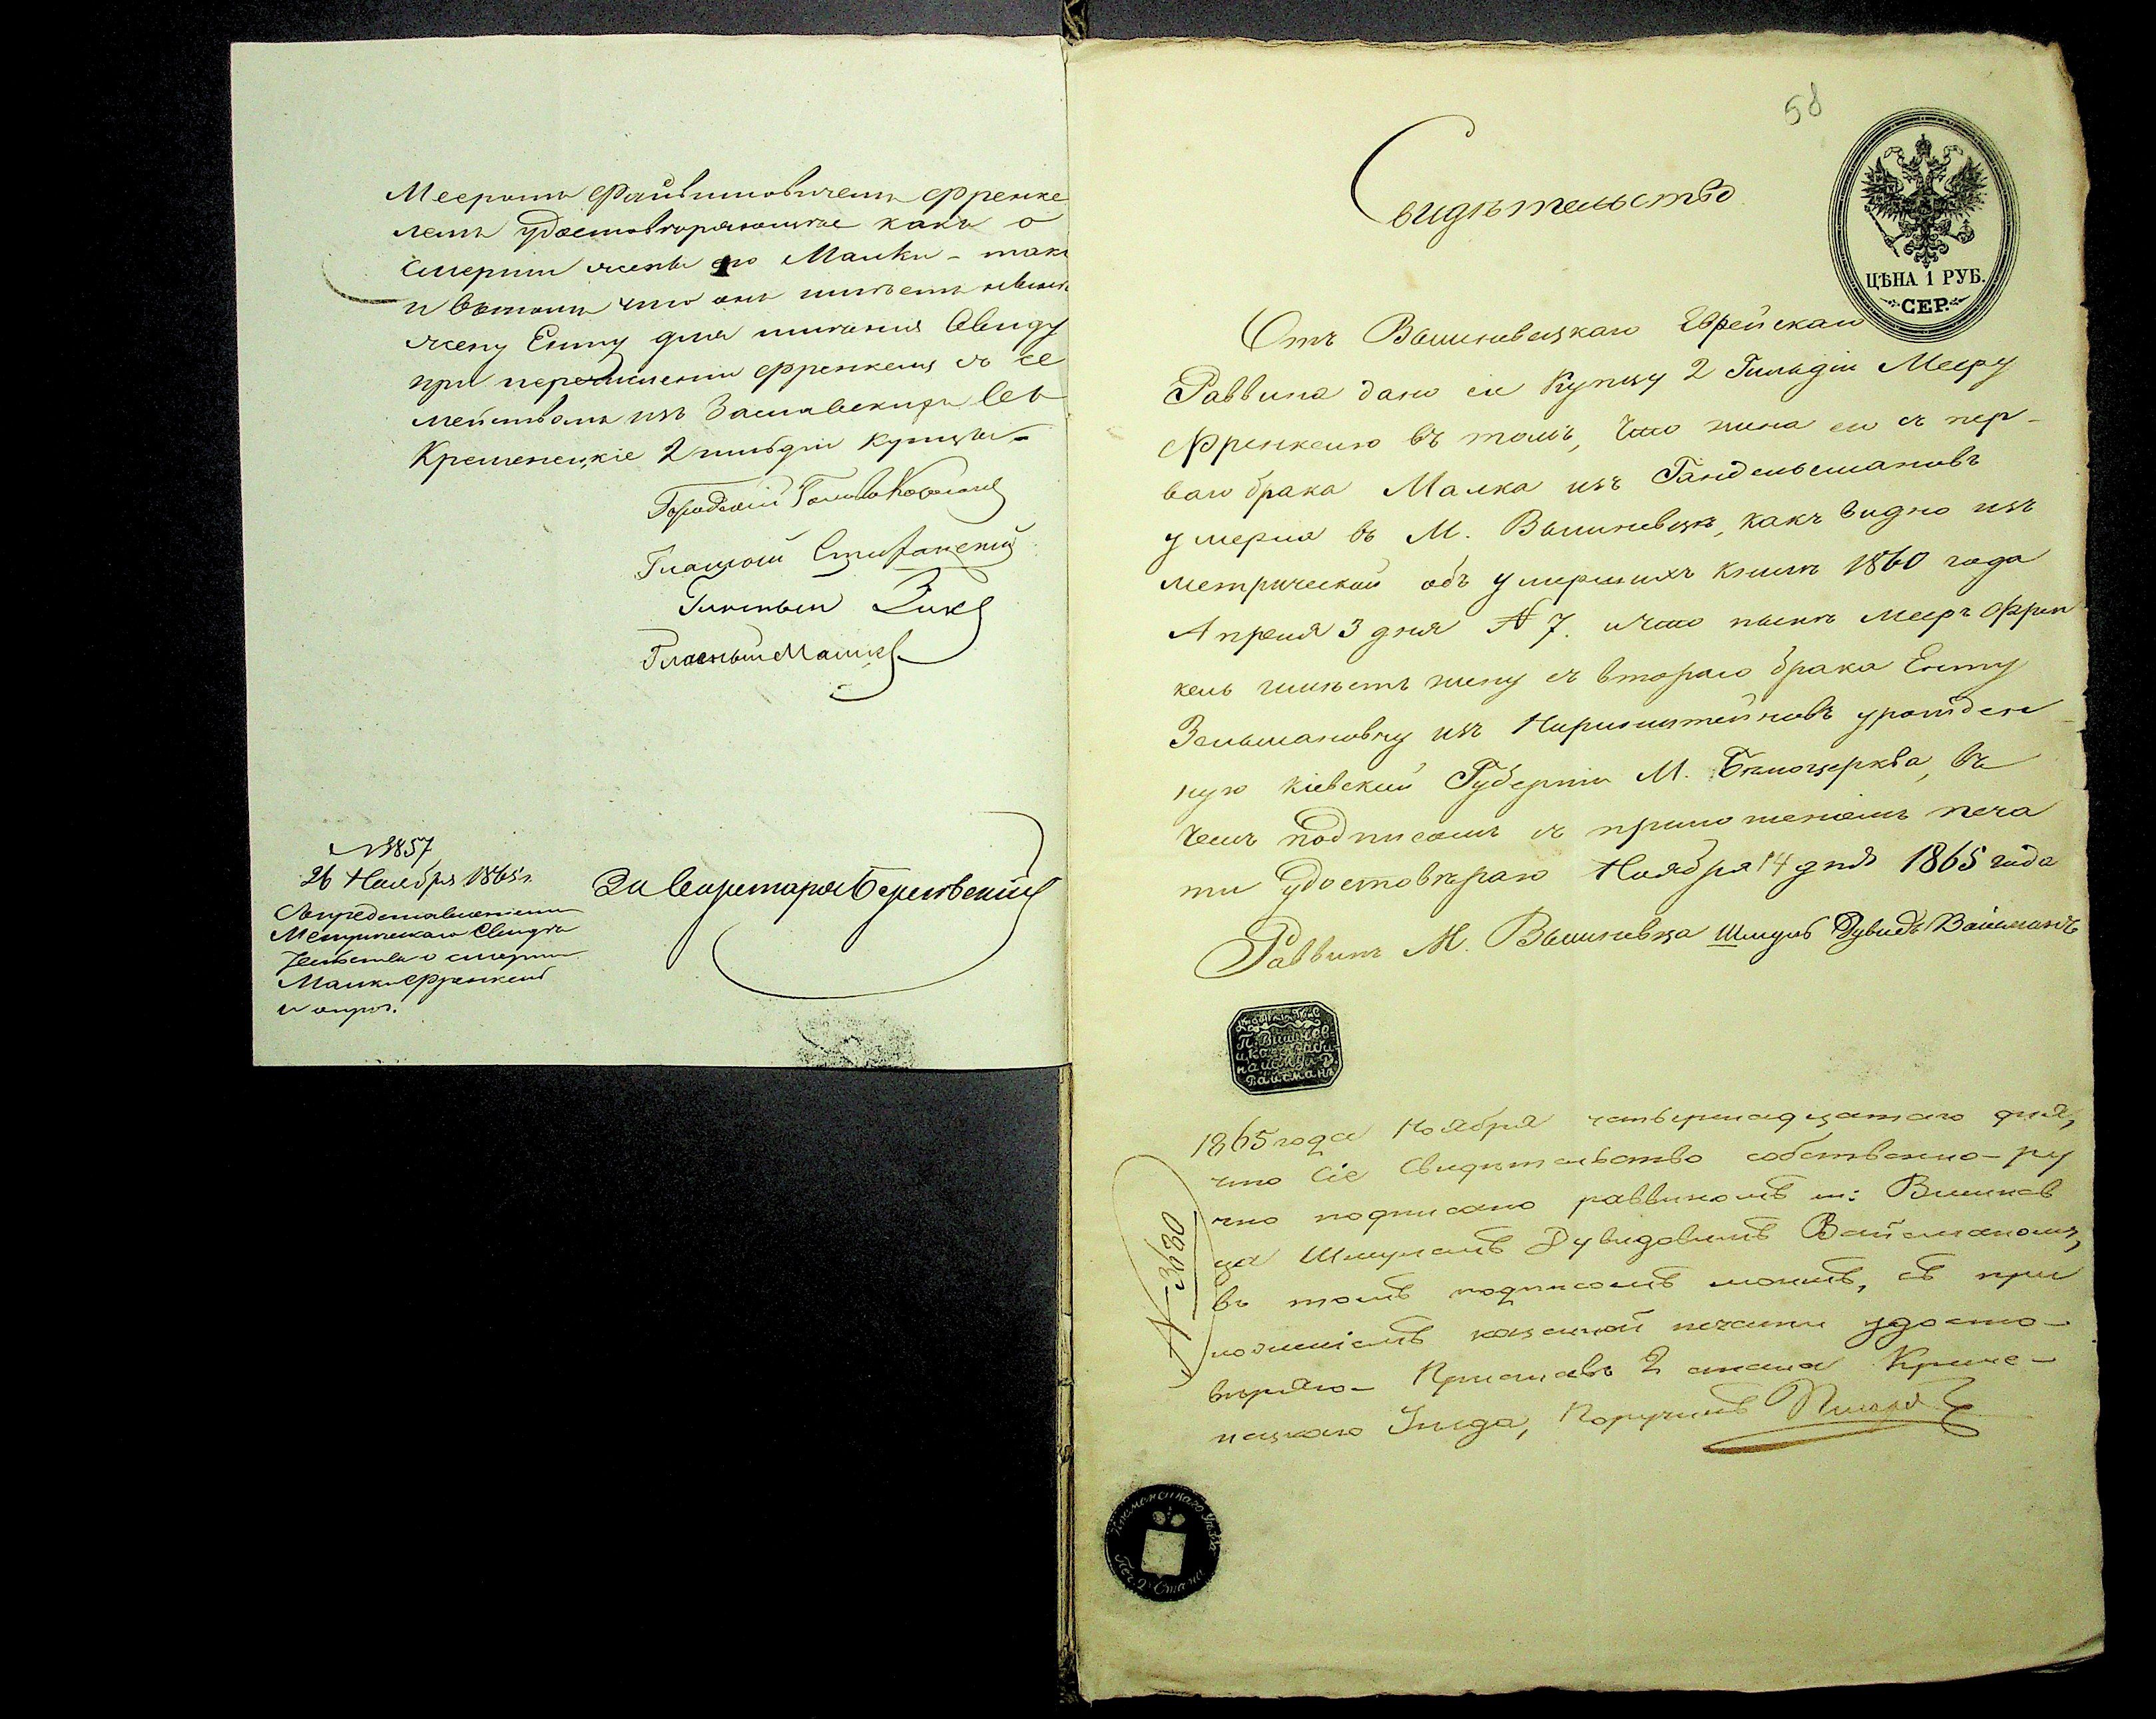 Мееромъ Файвишовичемъ Френке
лемъ удостоверяющiе какъ о
Смерти жены его Малки - такъ
и въ томъ что онъ имѣетъ нынѣ
жену Енту для имѣнiя Ввиду
при перечисленiи Френкеля съ се
мействомъ изъ Заславскихъ въ
Кременецкiе 2 гильдiи купцы -
Городской Голова
Гласный
Гласный Зик
Гласный
№ 3857
26 Ноября 1865 г.
Съ представленiемъ
Метрическаго Свидѣ
тельства о смерти
Малки Френкель
и
За Секретаря
58
Свидѣтельство
ЦѢНА 1 РУБ.
СЕР.
Отъ Вышневецкаго Еврейскаго
Раввина дано сiе Купцу 2 Гильдiи Мееру
Френкелю въ томъ, что жина его съ пер-
ваго брака Малка изъ Гандельсмановъ
умерла въ М. Вышневцѣ, какъ видно изъ
метрической объ умершихъ книги 1860 года
Апреля 3 дня № 7. и что нынѣ Мееръ Френ
кель имѣетъ жину съ втораго брака Енту
Зельмановну изъ урожден
ную Кiевской Губернiи М. Бѣлоцерква, въ
чемъ подписомъ съ приложенiемъ печа
ти удостовѣраю Ноября 14 дня 1865 года
Раввинъ М. Вышневца Шмулъ Дувидъ Вайсманъ
П. Вишнев-
цкаго Рави-
на Шмул. Д.
Вайсманъ
1865 года Ноября четвернадцатаго дня,
что Сiе Свидѣтельство собственно-ру
чно подписано раввиномъ м: Вишнев
ца Шмулемъ Дувидовымъ Вайсманомъ,
въ томъ подписомъ моимъ, съ при
ложенiемъ казенной печати удосто-
вѣряю - Приставъ 2 стана Креме-
нецкаго Уѣзда, Поручикъ
№ 3630
Кременецкаго Уѣзда
Печ. 2 Стана